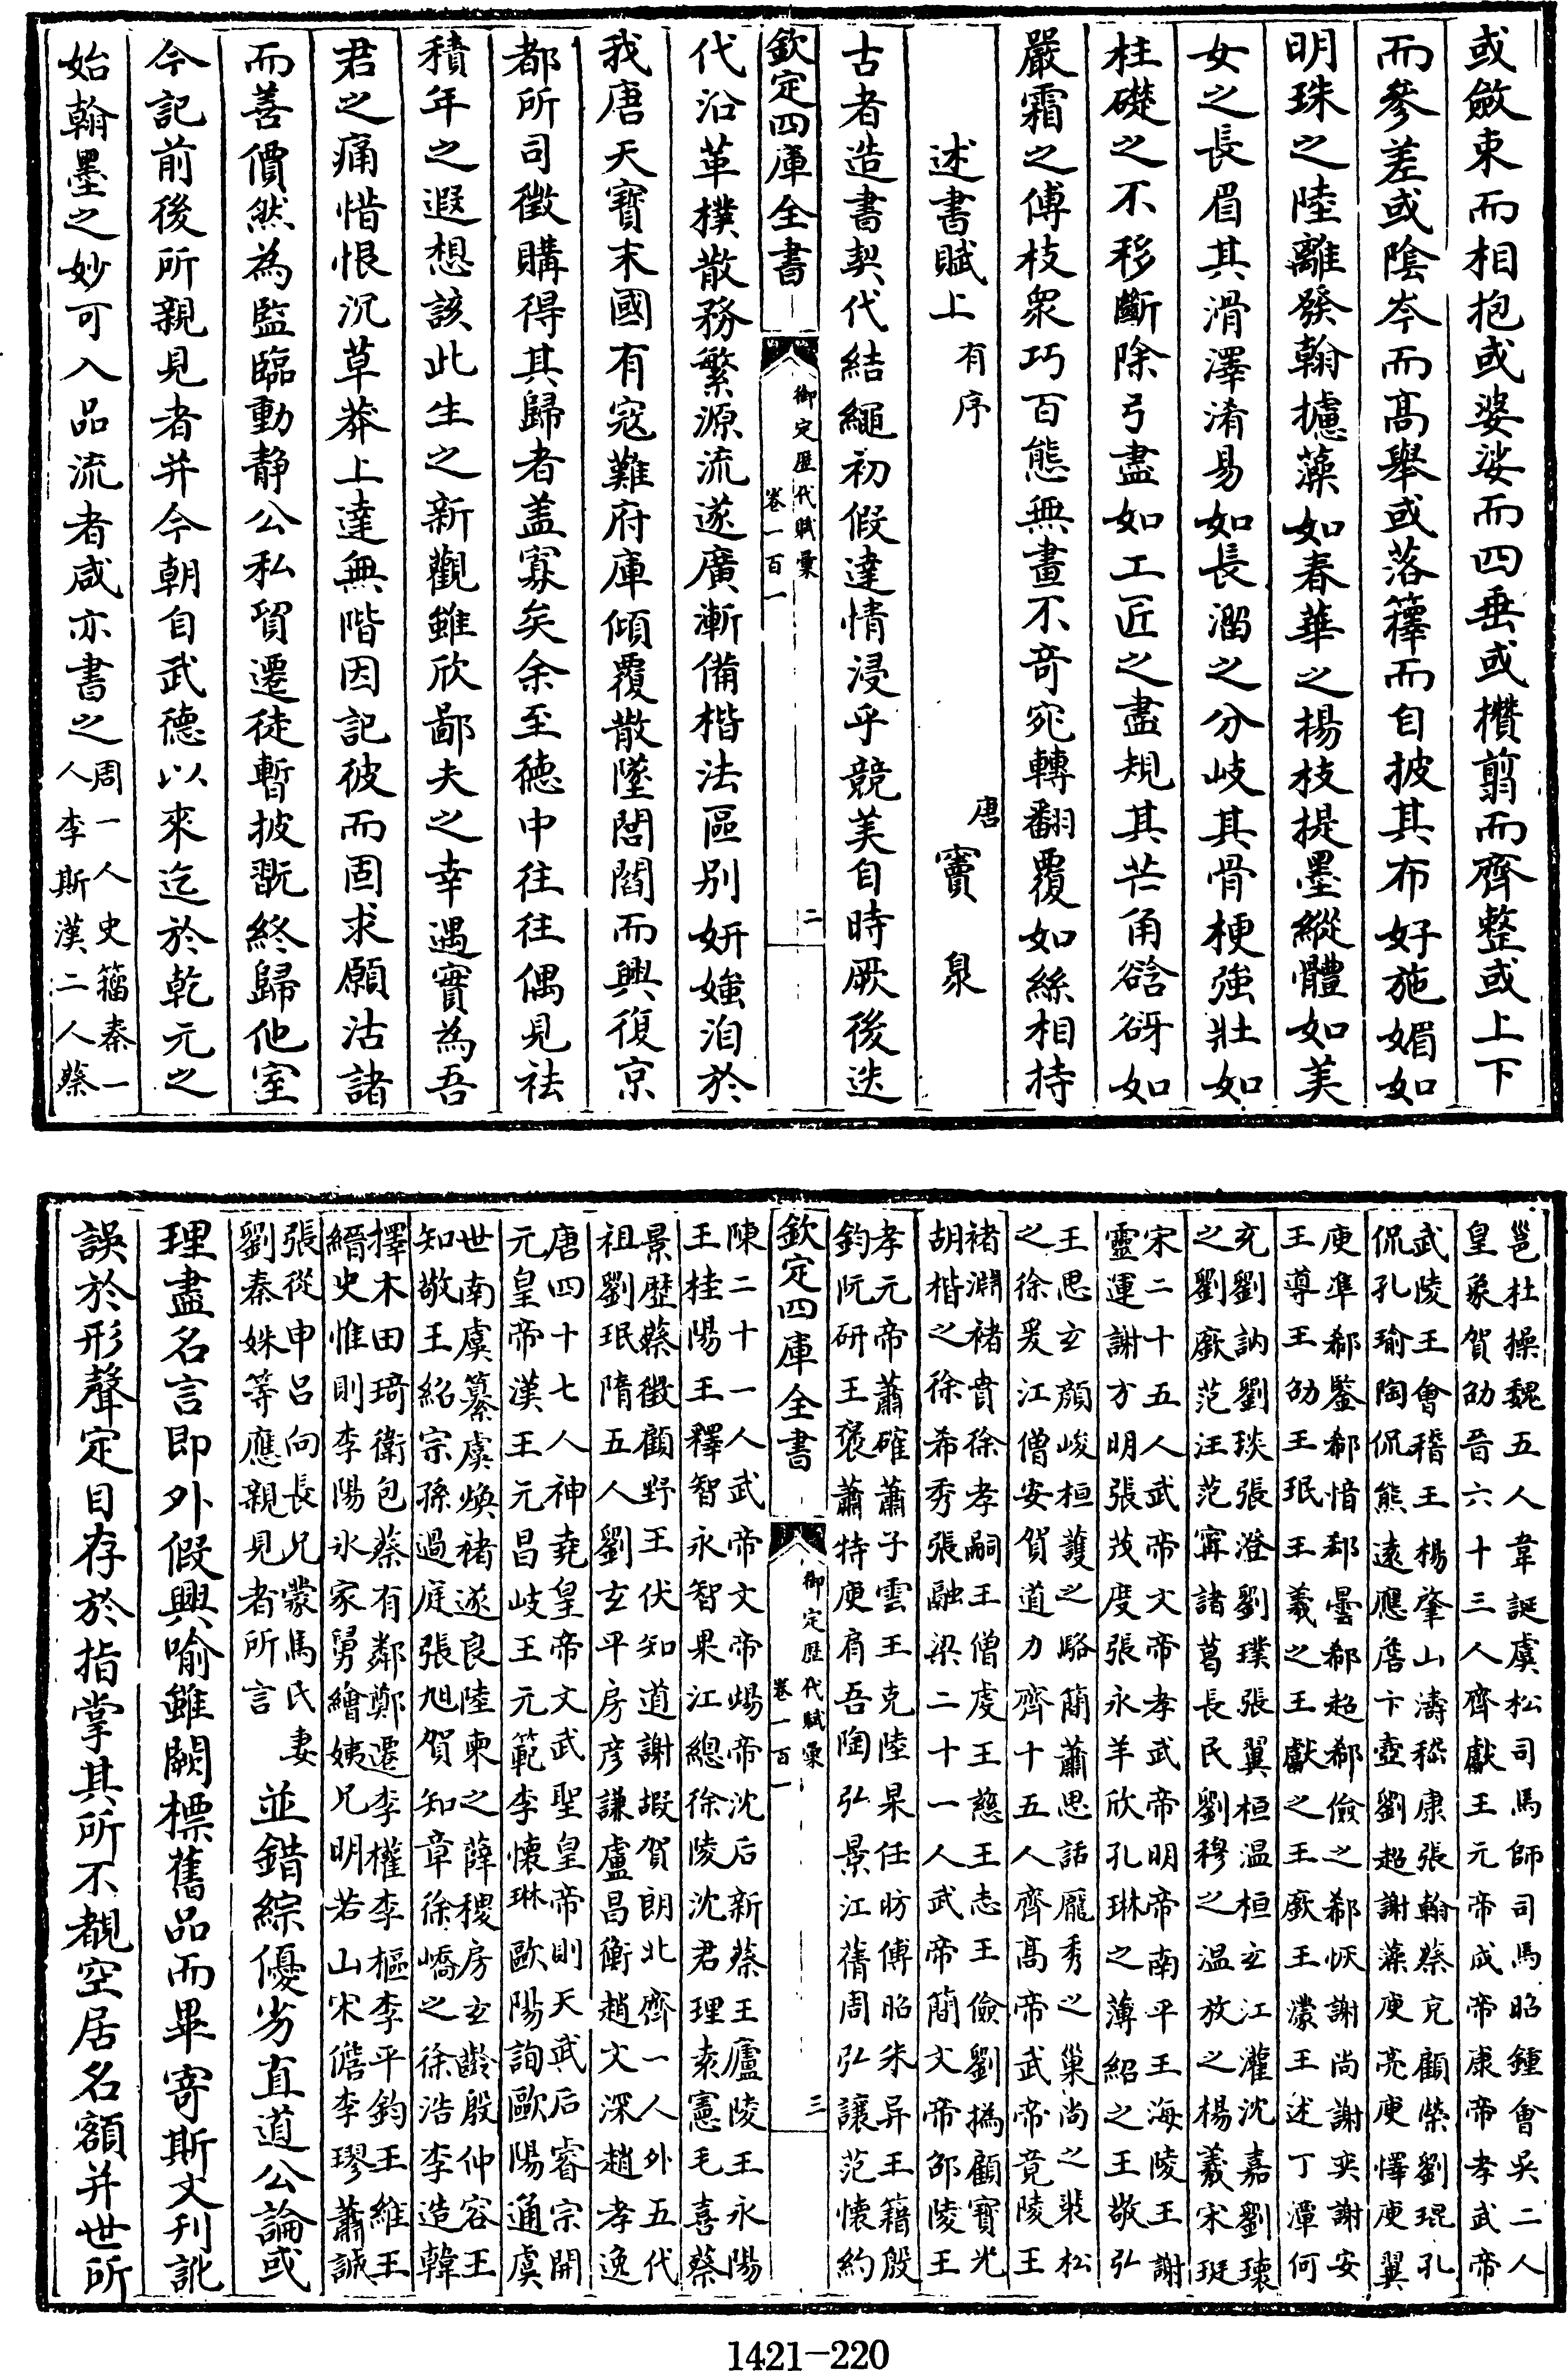 或斂束而相抱或婆娑而四垂或攢翦而齊整或上下
而參差或陰岑而高舉或落籜而自披其布好施媚如
明珠之陸離發翰攄藻如春華之楊枝提墨縱體如美
女之長眉其滑澤淆易如長溜之分岐其骨梗強壯如
柱礎之不移斷除弓盡如工匠之盡規其芒角𧮰砑如
嚴霜之傅枝衆巧百態無盡不奇宛轉翻覆如絲相持
述書賦上有序 唐竇泉
古者造書契代結繩初假達情浸乎競美自時厥後迭
欽定四庫全書 御定歷代賦彙 卷一百一 二
代沿革樸散務繁源流遂廣漸備楷法區別妍媸洎於
我唐天寶末國有寇難府庫傾覆散墜閭閻而興復京
都所司徵購得其歸者盖寡矣余至德中往往偶見祛
積年之遐想該此生之新觀雖欣鄙夫之幸遇實為吾
君之痛惜恨沉草莽上達無階因記彼而固求願沽諸
而善價然為監臨動静公私貿遷徒暫披翫終歸他室
今記前後所親見者并今朝自武德以來迄於乾元之
始翰墨之妙可入品流者咸亦書之周一人史籀秦一人李斯漢二人蔡
邕杜操魏五人韋誕虞松司馬師司馬昭鍾會吳二人皇象賀劭晉六十三人齊獻王元帝成帝康帝孝武帝
武陵王會稽王楊肇山濤嵇康張翰蔡克顧榮劉琨孔侃孔瑜陶侃熊遠應詹卞壼劉超謝藻庾亮庾懌庾翼
庾準郗鑒郗愔郗曇郗超郗儉之郗恢謝尚謝奕謝安王導王劭王珉王羲之王獻之王廞王濛王述丁潭何
充劉訥劉琰張澄劉璞張翼桓温桓玄江灌沈嘉劉瓌之劉廞范汪范寗諸葛長民劉穆之温放之楊羲宋珽
宋二十五人武帝文帝孝武帝明帝南平王海陵王謝靈運謝方明張茂度張永羊欣孔琳之薄紹之王敬弘
王思玄顔峻桓護之駱簡蕭思話龎秀之巢尚之裴松之徐爰江僧安賀道力齊十五人齊高帝武帝竟陵王
褚淵褚賁徐孝嗣王僧虔王慈王志王儉劉撝顧寶光胡楷之徐希秀張融梁二十一人武帝簡文帝邵陵王
孝元帝蕭確蕭子雲王克陸杲任昉傅昭朱异王籍殷鈞阮研王褒蕭特庾肩吾陶弘景江蒨周弘讓范懷約
欽定四庫全書 御定歷代賦彙 卷一百一 三
陳二十一人武帝文帝煬帝沈后新蔡王廬陵王永陽王桂陽王釋智永智果江總徐陵沈君理袁憲毛喜蔡
景歷蔡徵顧野王伏知道謝嘏賀朗北齊一人外五代祖劉珉隋五人劉玄平房彦謙盧昌衡趙文深趙孝逸
唐四十七人神堯皇帝文武聖皇帝則天武后睿宗開元皇帝漢王元昌岐王元範李懷琳歐陽詢歐陽通虞
世南虞纂虞煥褚遂良陸柬之薛稷房玄齡殷仲容王知敬王紹宗孫過庭張旭賀知章徐嶠之徐浩李造韓
擇木田琦衛包蔡有鄰鄭遷李權李樞李平鈞王維王縉史惟則李陽冰家舅繪姨兄明若山宋儋李璆蕭誠
張從申呂向長兄蒙馬氏妻劉秦妹等應親見者所言並錯綜優劣直道公論或
理盡名言即外假興喻雖闕標舊品而畢寄斯文刋訛
誤於形聲定目存於指掌其所不覩空居名額并世所
1421-220